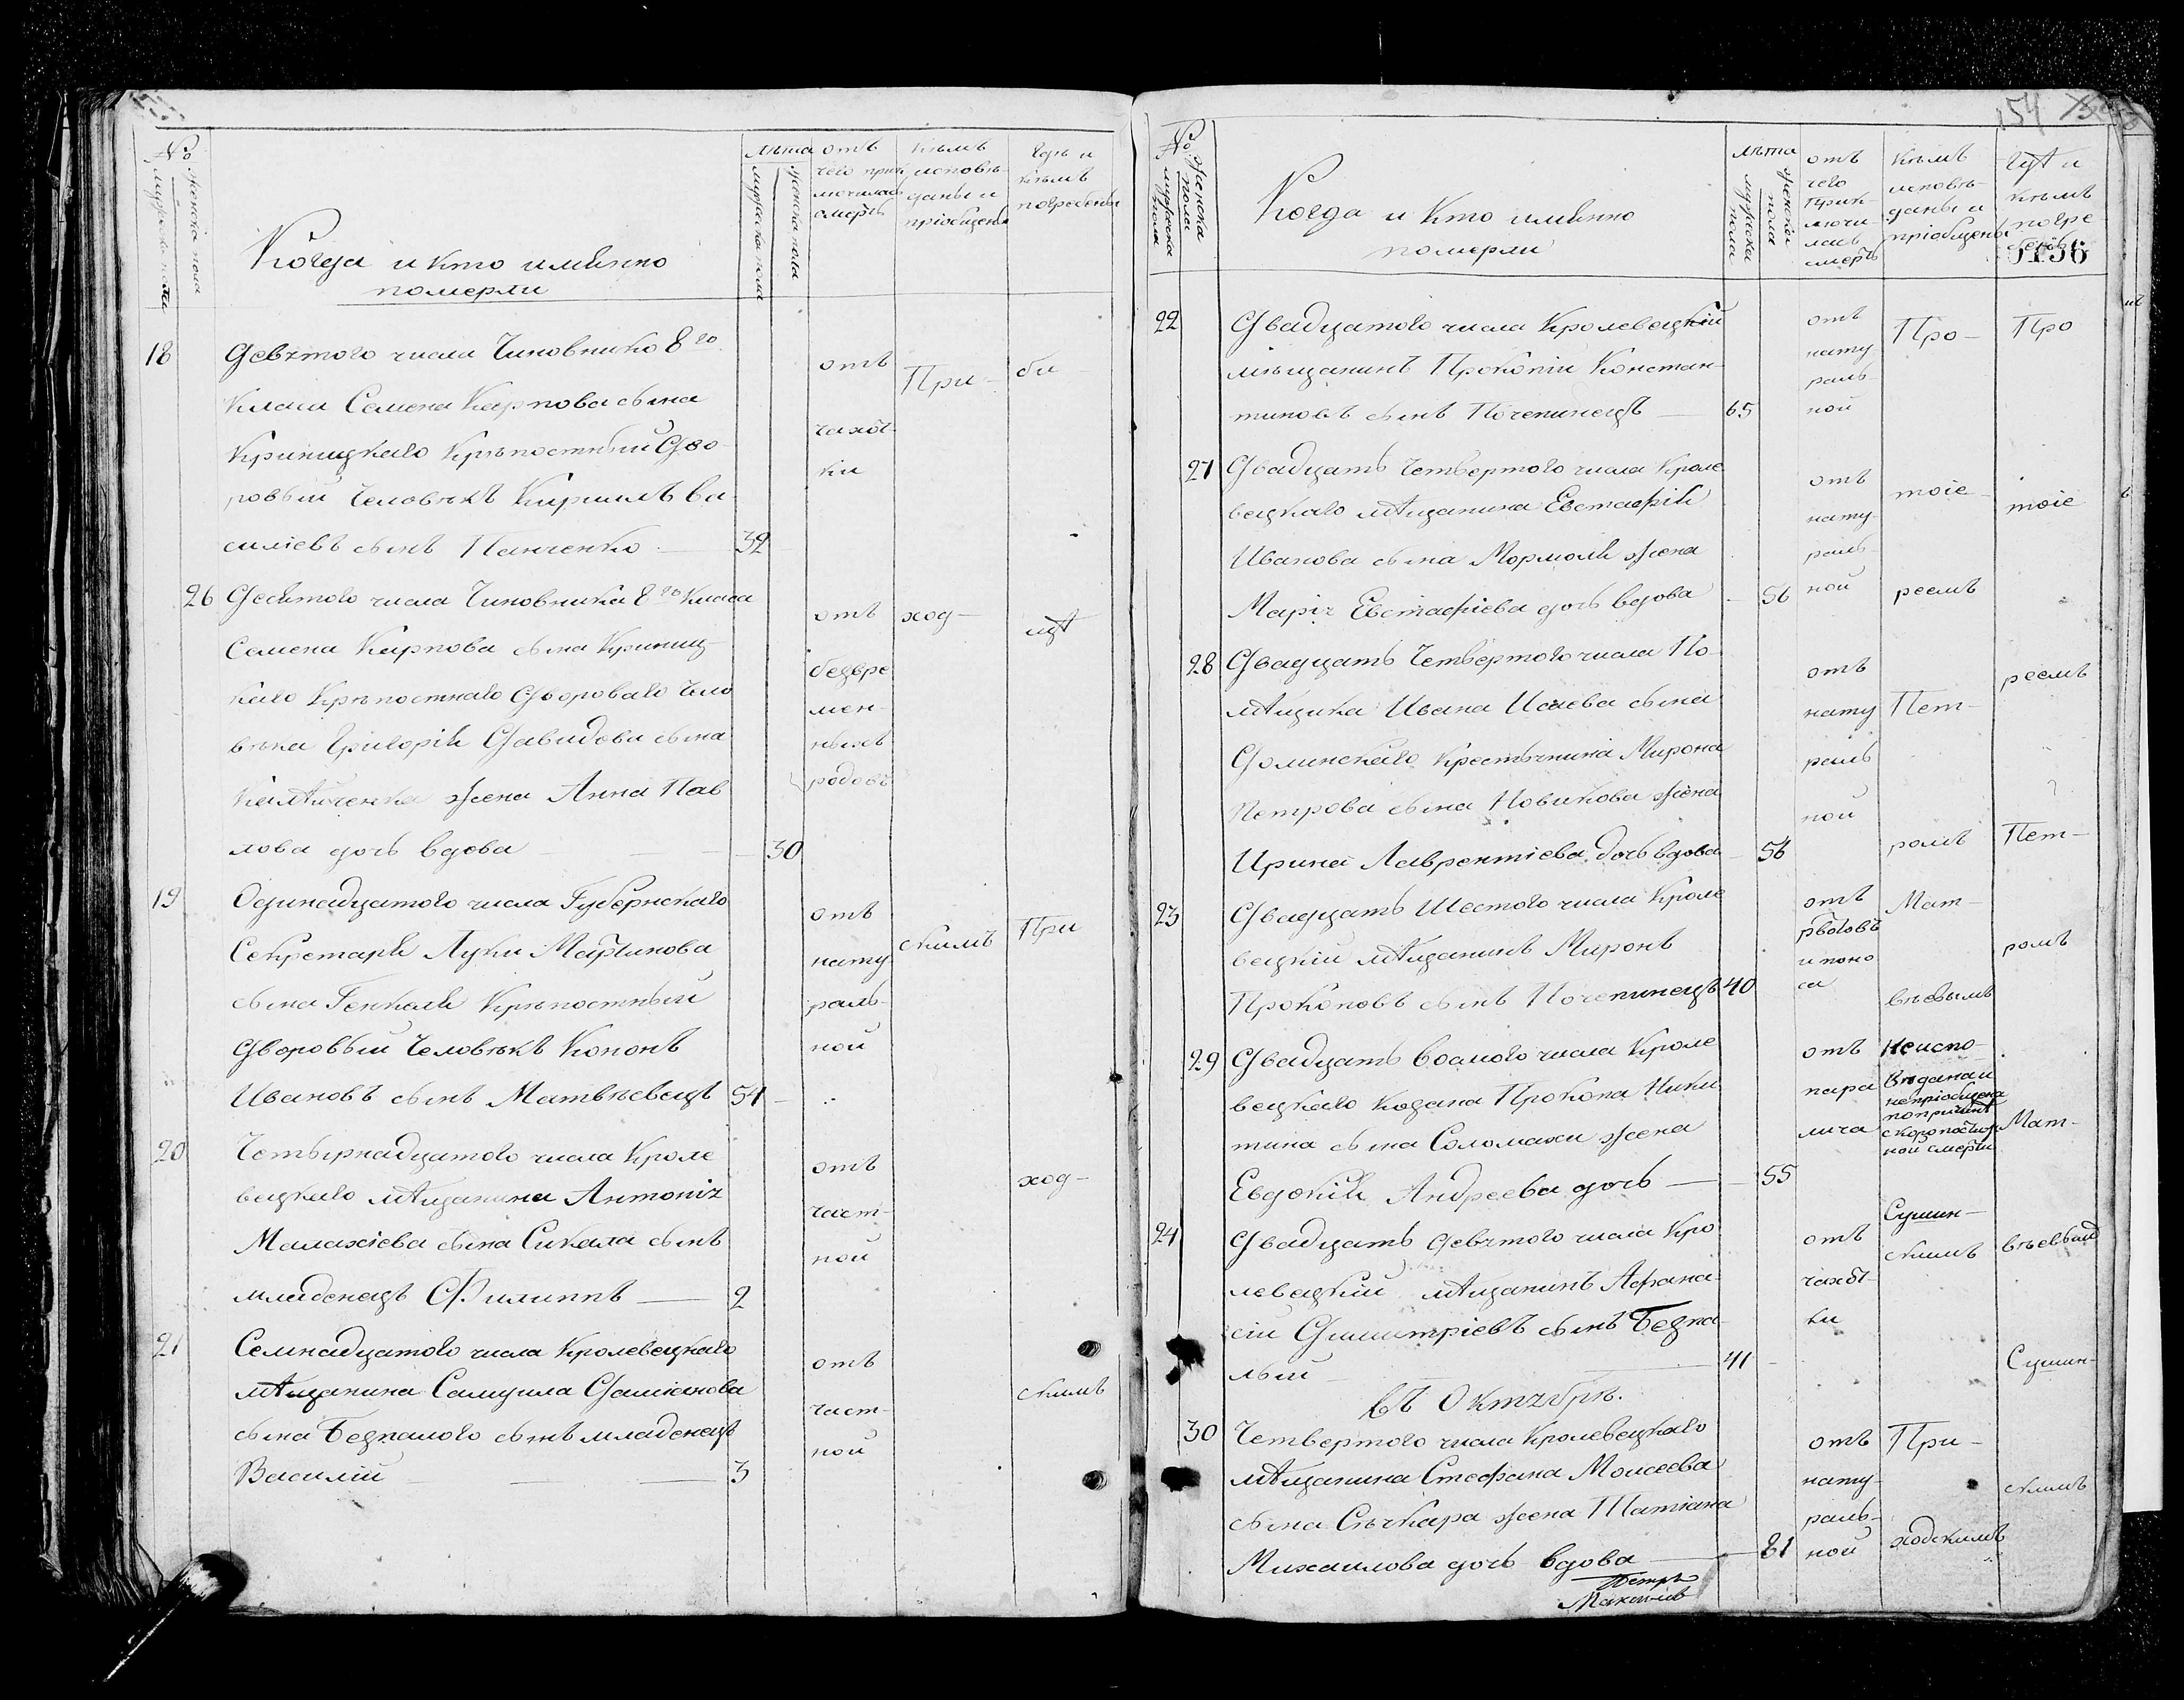 №
мужеска пола
женска пола
Когда и кто именно
померли
лѣта
мужеска пола
женска пола
отъ
чего при
ключилась
смерть
кѣмъ
исповѣ-
даны и
пріобщены
гдѣ и
кѣмъ
погребены
18
Девятого числа Чиновника 8го
класа Семена Карпова сына
Криницкаго Крѣпостный Дво-
ровый Человѣкъ Кирилъ Ва-
силіевъ сынъ Панченко 32
отъ
чахот-
ки
При-
26 Десятого числа Чиновника 8го Класа
Семена Карпова сына Криниц-
каго Крѣпостнаго Двороваго Чело
вѣка Григорія Давидова сына
жена Анна Пав
лова дочь вдова 30
отъ
безвре
мен-
ныхъ
родовъ
ход-
19 Одинадцатого числа Губернскаго
Секретаря Луки Мартинова
сына Генкаля Крѣпостный
Дворовый Человѣкъ Кононъ
Ивановъ сынъ Матвѣевецъ 54
отъ
нату
раль-
ной
скимъ
При
20 Четырнадцатого числа Кроле
вецкаго мѣщанина Антонія
Малахіева сына Сикала сынъ
младенецъ Филиппъ 2
отъ
ной
ход-
21 Семнадцатого числа Кролевецкаго
мѣщанина Самуила Даміанова
сына Безпалого сынъ младенецъ
Василій 3
отъ
ной
скимъ
154
№
мужеска пола
женска пола
Когда и кто именно
померли
лѣта
мужеска пола
женска пола
отъ
чего
прик
лючи
лась
смерть
кѣмъ
исповѣ-
даны и
пріобщены
гдѣ и
кѣмъ
погре
бены
0156
22 Двадцатого числа Кролевецкій
мѣщанинъ Прокопій Констан-
тиновъ сынъ Почепинецъ 65
отъ
нату
раль
ной
Про-
Про
27 Двадцать Четвертого числа Кроле
вецкаго мѣщанина Евстафія
Иванова сына Мормоля жена
Марія Евстафіева дочь вдова 56
отъ
нату-
раль
ной
тоіе-
реемъ
тоіе
28 Двадцать Четвертого числа По-
мѣщика Ивана Исаева сына
Долинскаго Крестьянина Мирона
Петрова сына Новикова жена
Ирина Лаврентіева дочь вдова 56
отъ
нату
раль
ной
Пет-
ромъ
реемъ
Пет-
23 Двадцать Шестого числа Кроле
вецкій мѣщанинъ Миронъ
Прокоповъ сынъ Почепинецъ 40
отъ
рвотовъ
и поно
са
Мат-
вѣевымъ
ромъ
29 Двадцать восмого числа Кроле
вецкаго Козака Прокопа Ники
тина сына Соломахи жена
Евдокія Андреева дочь 55
отъ
пара
лича
Неиспо-
вѣдана и
непріобщена
попричинѣ
скоропостиж
ной смерти
Мат-
24 Двадцать девятого числа Кро
левецкій мѣщанинъ Афана-
сій Димитріевъ сынъ Безпа-
лый 41
отъ
чахот-
ки
Сушин-
скимъ
вѣевым
въ Октябрѣ.
30 Четвертого числа Кролевецкаго
мѣщанина Стефана Моисеева
сына Сѣчкара жена Татіана
Михаилова дочь вдова 81
отъ
нату-
раль-
ной
При-
ходскимъ
Сушин-
скимъ
Петръ